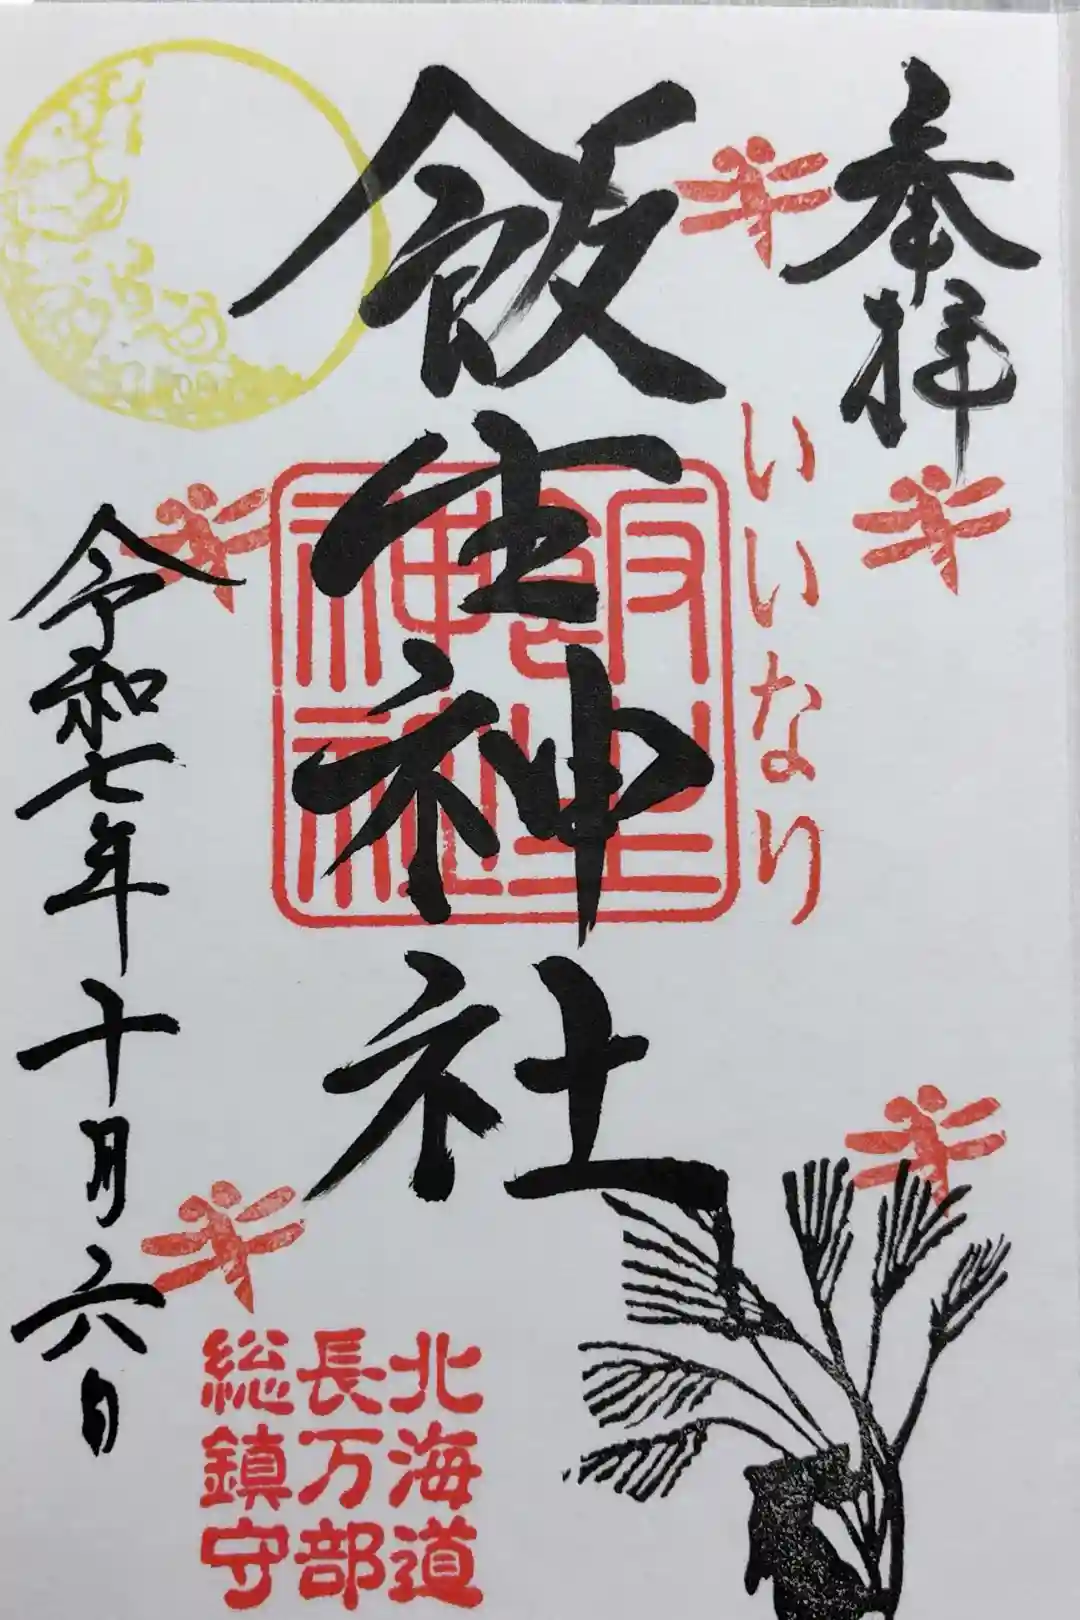 奉拝
いいなり
飯生神社
飯生
神社
令和七年十月六日
北海道
長万部
総鎮守